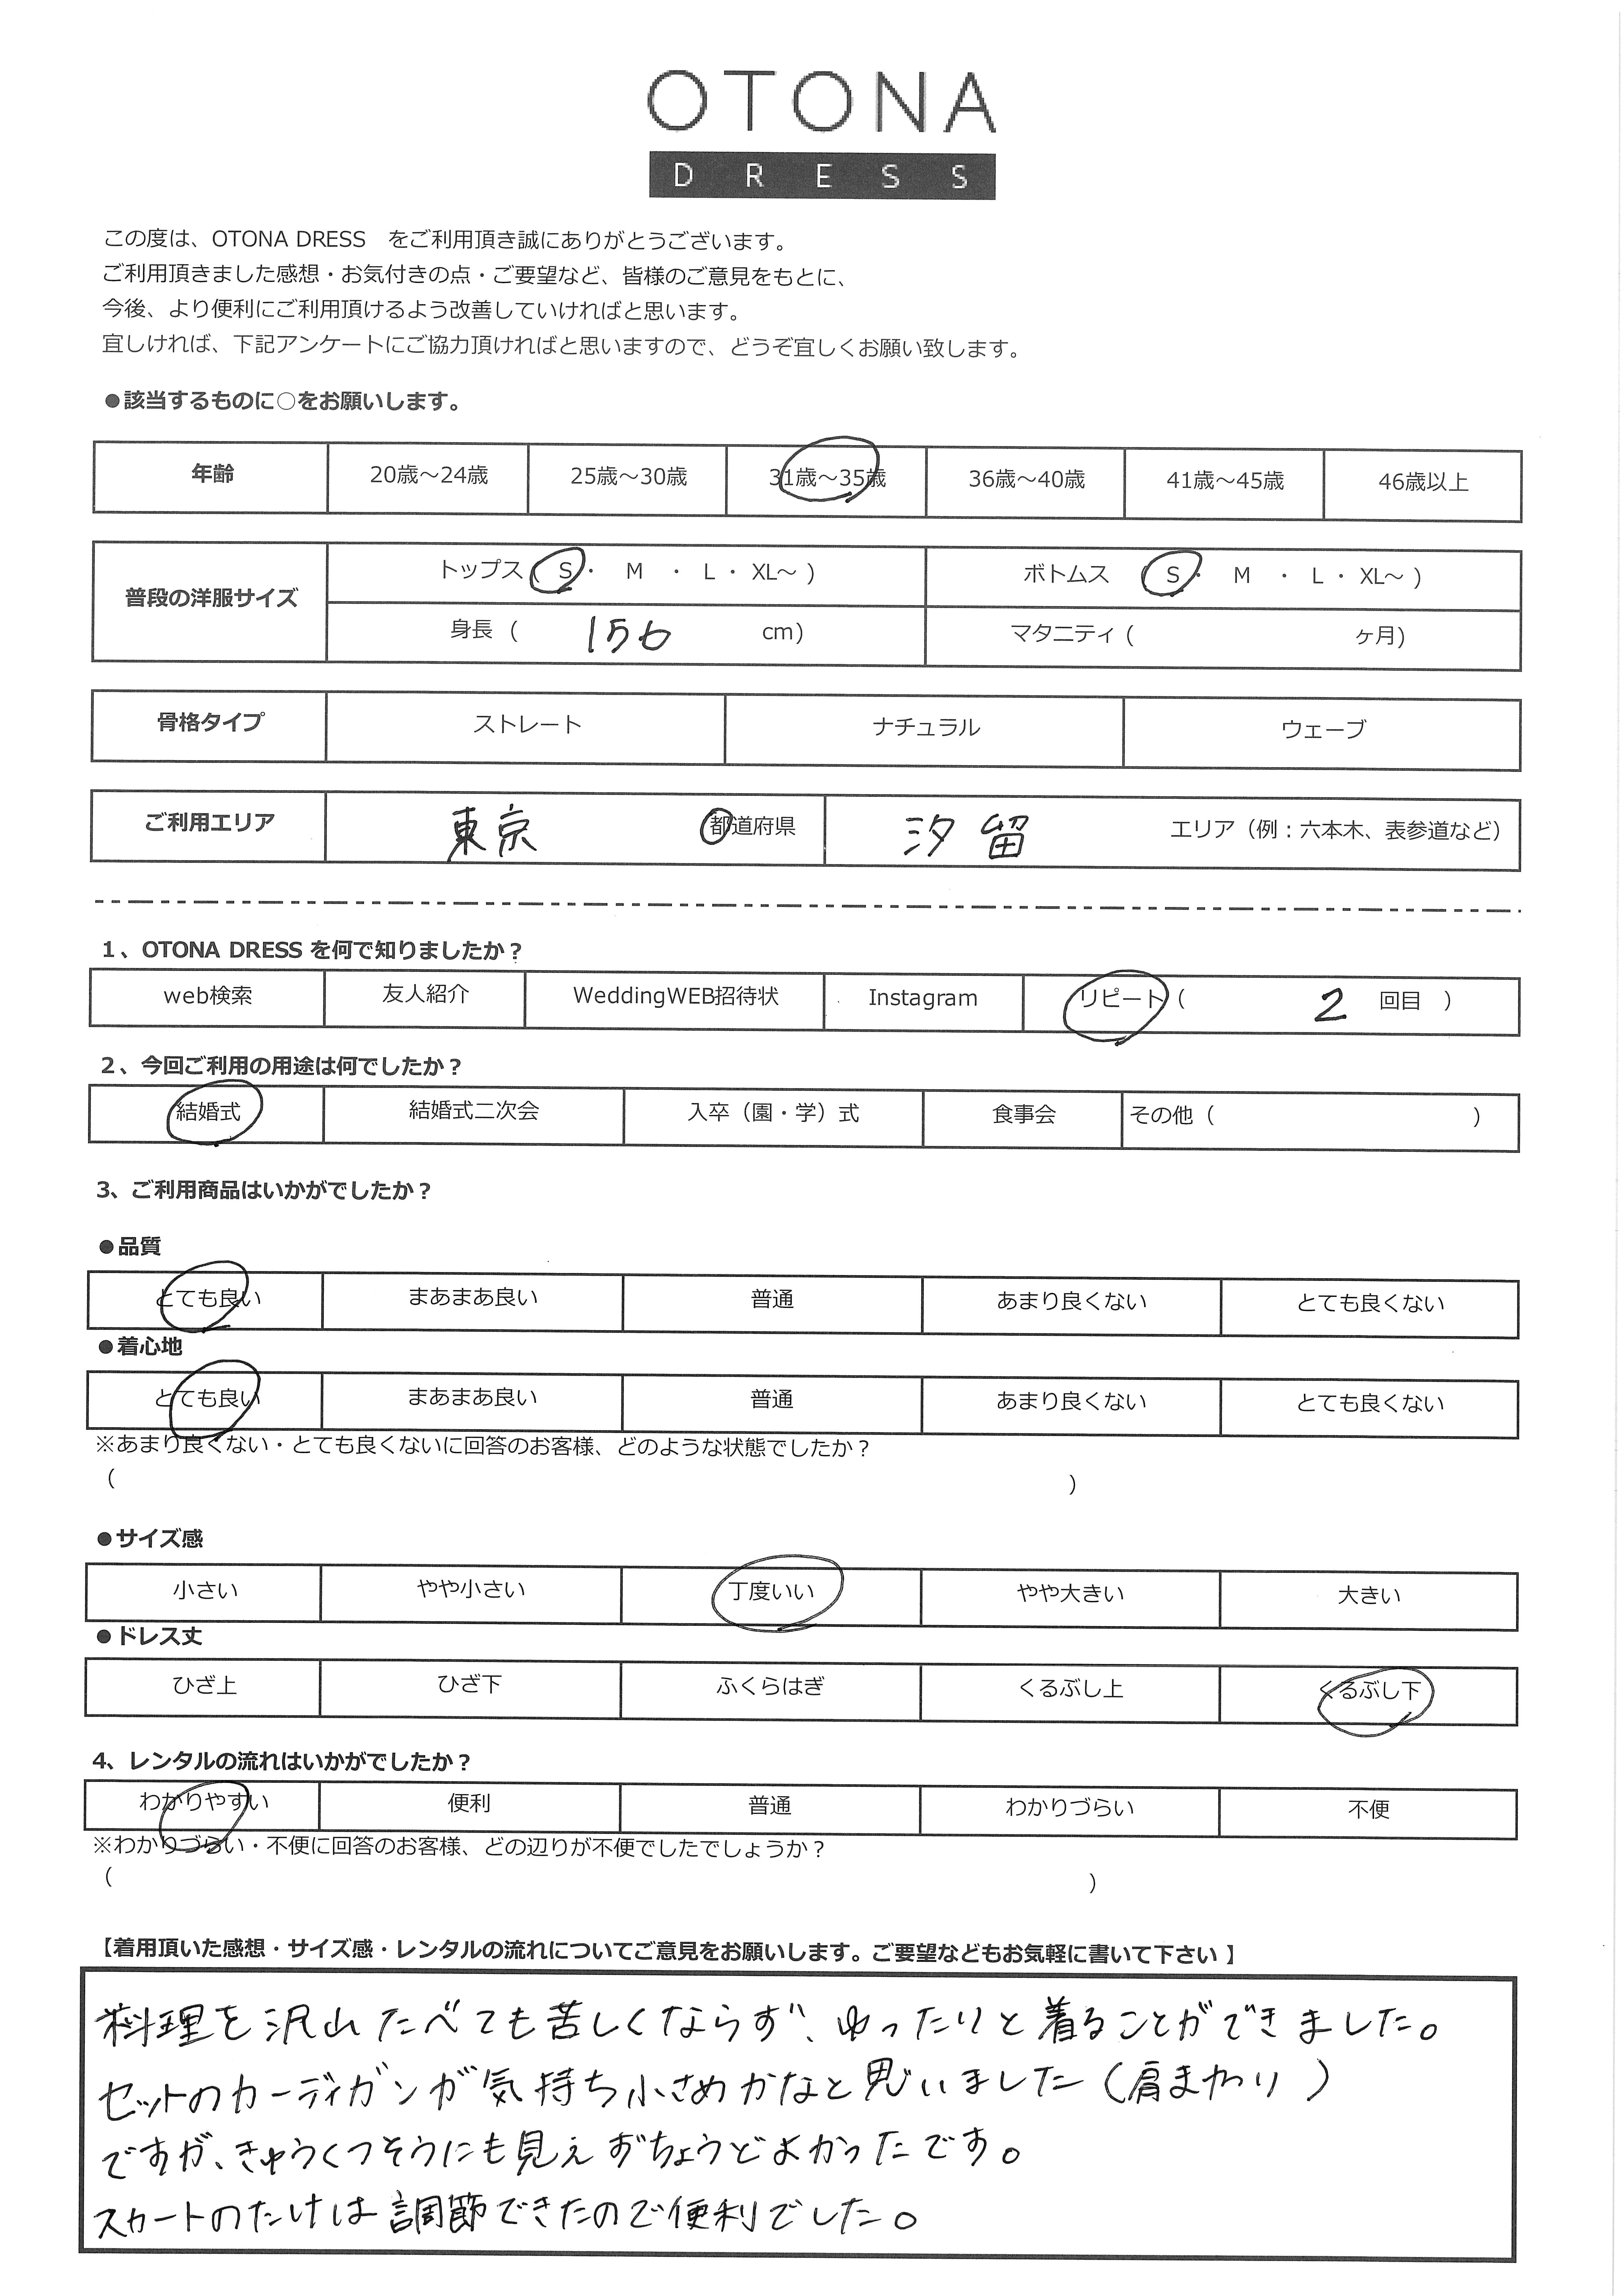 OTONA
DRESS
この度は、OTONA DRESS をご利用頂き誠にありがとうございます。
ご利用頂きました感想・お気付きの点・ご要望など、皆様のご意見をもとに、
今後、より便利にご利用頂けるよう改善していければと思います。
宜しければ、下記アンケートにご協力頂ければと思いますので、どうぞ宜しくお願い致します。
●該当するものに○をお願いします。
年齢 20歳～24歳 25歳～30歳 31歳～35歳 36歳～40歳 41歳～45歳 46歳以上
普段の洋服サイズ トップス ( S ・ M ・ L ・ XL～ ) ボトムス ( S ・ M ・ L ・ XL～ )
身長 ( 156 cm) マタニティ ( ヶ月)
骨格タイプ ストレート ナチュラル ウェーブ
ご利用エリア 東京 都道府県 汐留 エリア（例：六本木、表参道など）
1、OTONA DRESS を何で知りましたか？
web検索 友人紹介 WeddingWEB招待状 Instagram リピート（ 2 回目 ）
2、今回ご利用の用途は何でしたか？
結婚式 結婚式二次会 入卒（園・学）式 食事会 その他（ ）
3、ご利用商品はいかがでしたか？
●品質
とても良い まあまあ良い 普通 あまり良くない とても良くない
●着心地
とても良い まあまあ良い 普通 あまり良くない とても良くない
※あまり良くない・とても良くないに回答のお客様、どのような状態でしたか？
（ ）
●サイズ感
小さい やや小さい 丁度いい やや大きい 大きい
●ドレス丈
ひざ上 ひざ下 ふくらはぎ くるぶし上 くるぶし下
4、レンタルの流れはいかがでしたか？
わかりやすい 便利 普通 わかりづらい 不便
※わかりづらい・不便に回答のお客様、どの辺りが不便でしたでしょうか？
（ ）
【着用頂いた感想・サイズ感・レンタルの流れについてご意見をお願いします。ご要望などもお気軽に書いて下さい 】
料理を沢山たべても苦しくならず、ゆったりと着ることができました。
セットのカーディガンが気持ち小さめかなと思いました（肩まわり）
ですが、きゅうくつそうにも見えずちょうどよかったです。
スカートのたけは調節できたので便利でした。